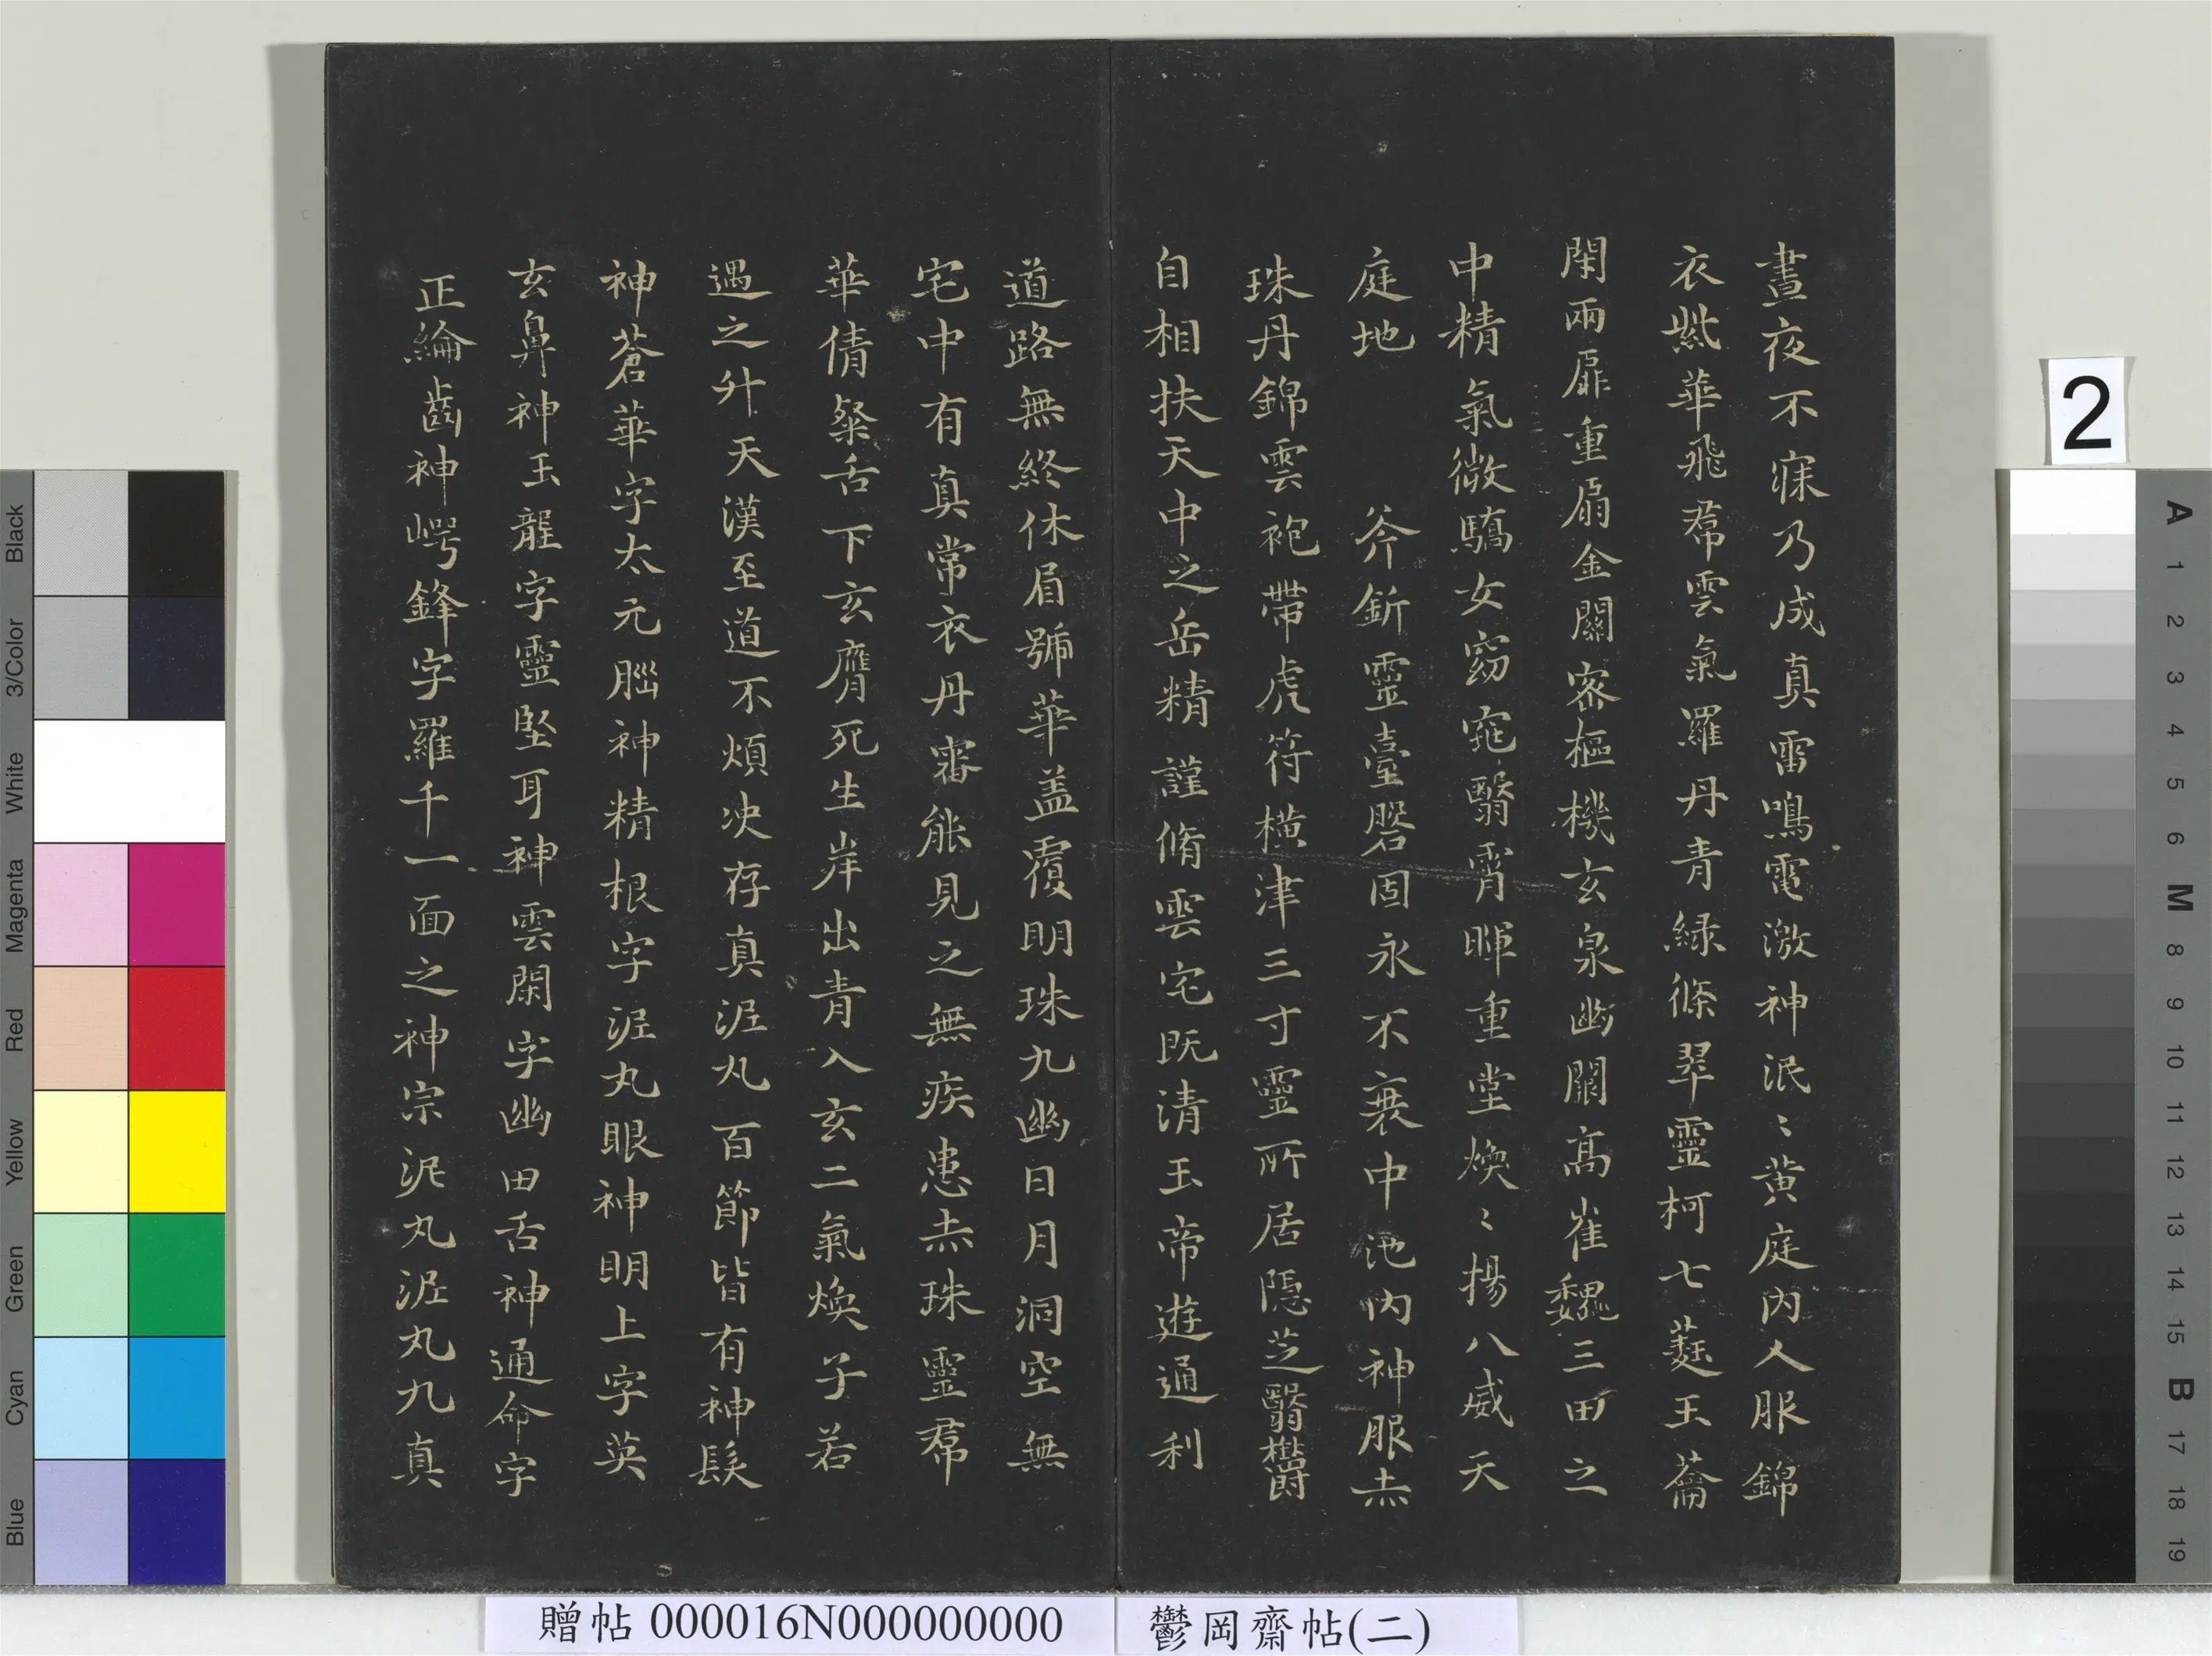 晝夜不寐乃成真雷鳴電激神泯〻黄庭内人服錦
衣紫華飛帬雲氣羅丹青緑條翠靈柯七蕤玉蘥
閑兩扉重扇金關密樞機玄泉幽闕髙崔巍三田之
中精氣微驕女窈窕翳霄暉重堂煥〻揚八威天
庭地斧釿靈臺磐固永不衰中池内神服赤
珠丹錦雲袍帶虎符横津三寸靈所居隠芝翳欝
自相扶天中之岳精謹脩雲宅既清玉帝遊通利
道路無終休眉號華盖覆明珠九幽日月洞空無
宅中有真常衣丹審能見之無疾患赤珠靈帬
華倩粲舌下玄膺死生岸出青入玄二氣煥子若
遇之升天漢至道不煩决存真泥丸百節皆有神髮
神蒼華字太元腦神精根字泥丸眼神明上字英
玄鼻神玉龍字靈堅耳神雲閑字幽田舌神通命字
正綸齒神崿鋒字羅千一面之神宗泥丸泥丸九真
贈帖 000016N000000000
鬱岡齋帖(二)
2
Black
3/Color
White
Magenta
Red
Yellow
Green
Cyan
Blue
A
1
2
3
4
5
6
M
8
9
10
11
12
13
14
15
B
17
18
19